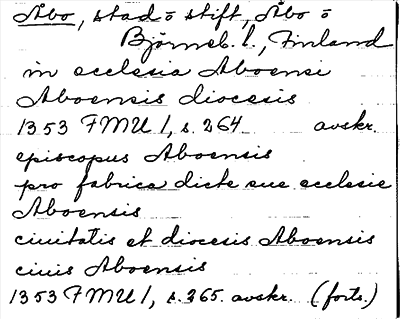 Åbo, stad o stift, Åbo o
Björneb. l., Finland
in ecclesia Aboensi
Aboensis diocesis
1353 FMU 1, s. 264 avskr.
episcopus Aboensis
pro fabrica dicte sue ecclesie
Aboensis
ciuitatis et diocesis Aboensis
ciuis Aboensis
1353 FMU 1, s. 265. avskr. (forts.)